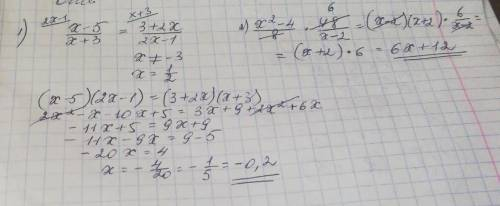 1) (x-5)/(x+3) = (3+2x)/(2x-1)
x ≠ -3
x = 1/2
(x-5)(2x-1) = (3+2x)(x+3)
2x² - x - 10x + 5 = 3x + 9 + 2x² + 6x
-11x + 5 = 9x + 9
-11x - 9x = 9 - 5
-20x = 4
x = -4/20 = -1/5 = -0,2
(x²-4)/8 · 48/(x-2) = (x-2)(x+2) · 6/(x-2) =
= (x+2) · 6 = 6x + 12